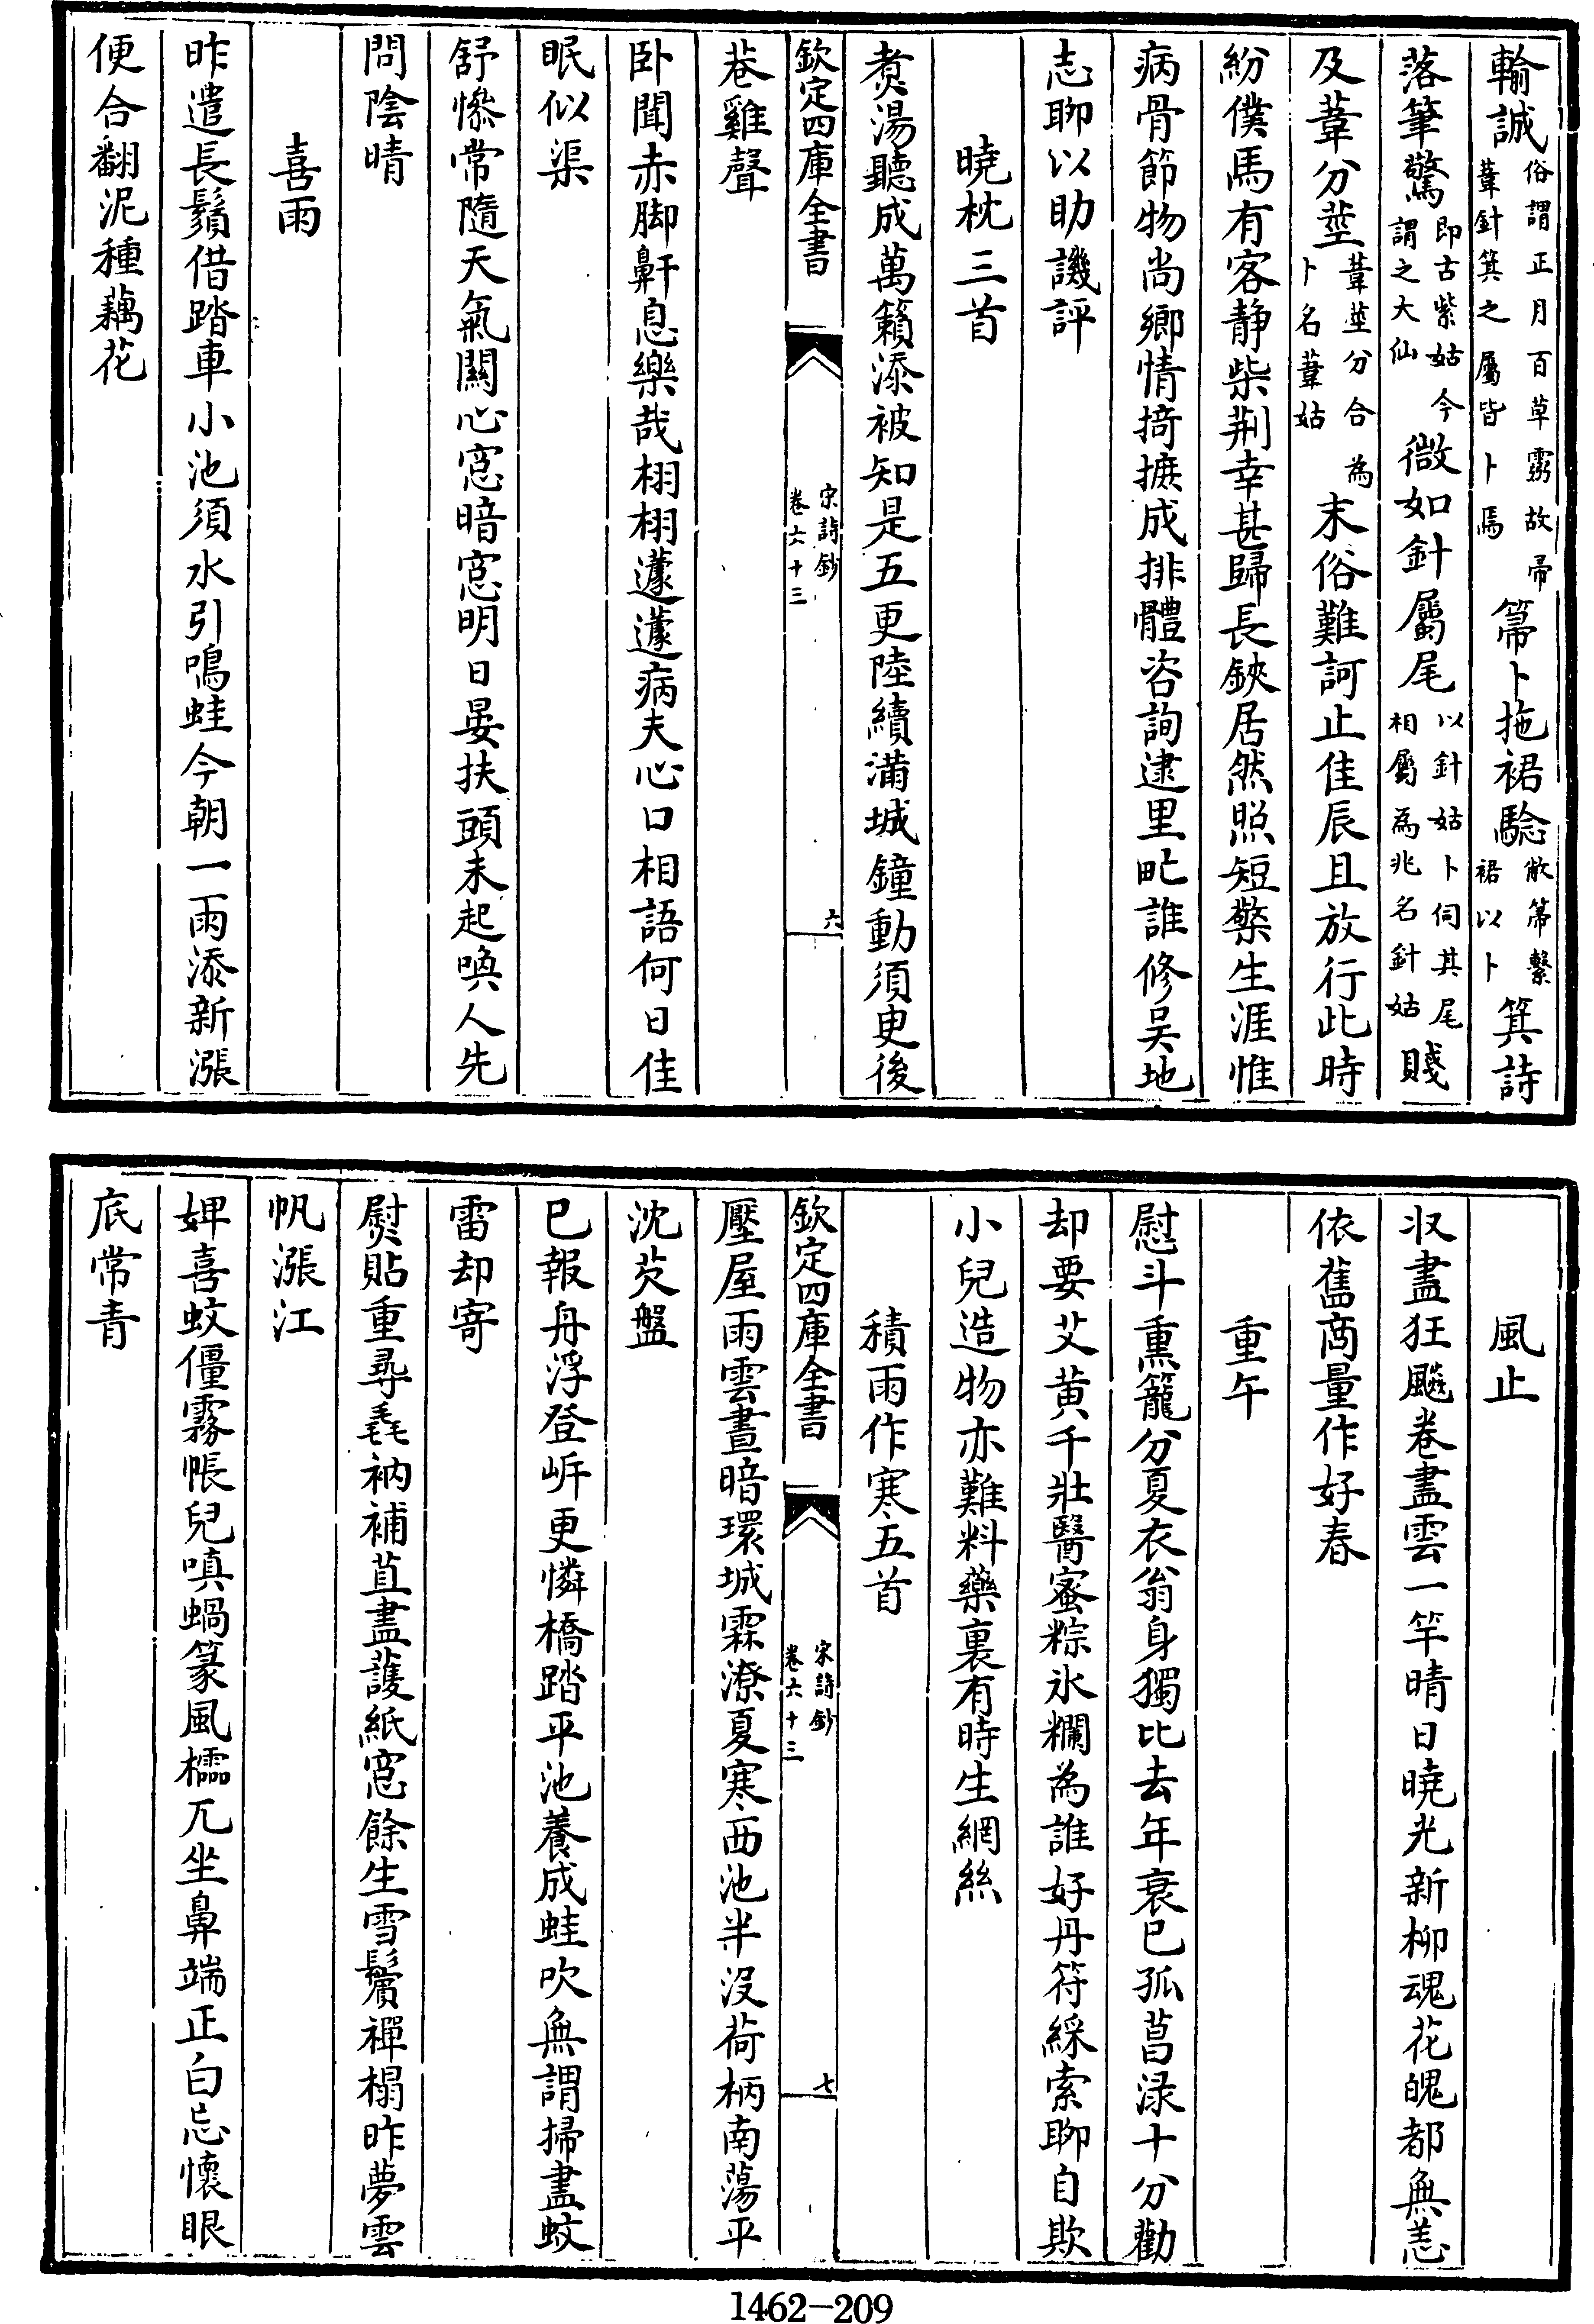 輸誠俗謂正月百草靈故帚
葦針箕之屬皆卜焉箒卜拖裙驗敝箒繫
裙以卜箕詩
落筆驚即古紫姑今
謂之大仙微如針屬尾以針姑卜伺其尾
相屬為兆名針姑賤
及葦分莖葦莖分合為
卜名葦姑末俗難訶止佳辰且放行此時
紛僕馬有客靜柴荆幸甚歸長鋏居然照短檠生涯惟
病骨節物尚鄉情掎摭成排體咨詢逮里甿誰修吳地
志聊以助譏評
曉枕三首
煮湯聽成萬籟添被知是五更陸續滿城鐘動須臾後
巷雞聲
卧聞赤脚鼾息樂哉栩栩蘧蘧病夫心口相語何日佳
眠似渠
舒慘常隨天氣關心窓暗窓明日晏扶頭未起喚人先
問陰晴
喜雨
昨遣長鬚借踏車小池須水引鳴蛙今朝一雨添新漲
便合翻泥種藕花
欽定四庫全書
宋詩鈔
卷六十三
六
風止
收盡狂飈卷盡雲一竿晴日曉光新柳魂花魄都無恙
依舊商量作好春
重午
慰斗熏籠分夏衣翁身獨比去年衰已孤菖淥十分勸
却要艾黄千壯醫蜜粽氷糷為誰好丹符綵索聊自欺
小兒造物亦難料藥裏有時生網絲
積雨作寒五首
壓屋雨雲晝暗環城霖潦夏寒西池半沒荷柄南蕩平
沈芡盤
已報舟浮登岍更憐橋踏平池養成蛙吹無謂掃盡蚊
雷却寄
熨貼重尋毳衲補苴盡護紙窓餘生雪鬢禪榻昨夢雲
帆漲江
婢喜蚊僵霧帳兒嗔蝸篆風櫺兀坐鼻端正白忘懷眼
底常青
欽定四庫全書
宋詩鈔
卷六十三
七
1462-209